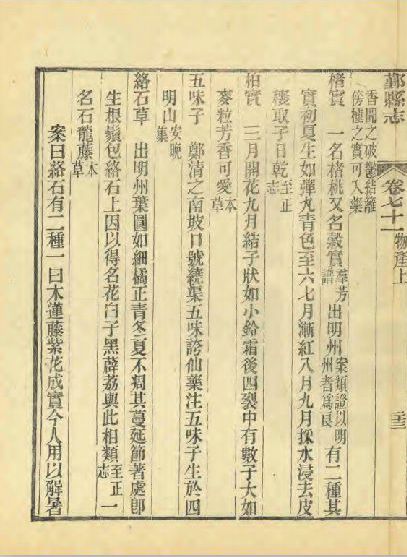 鄞縣志 卷七十一 物產上
香聞之破鬱結籬
傍種之實可入藥
楮實 一名榖桃又名榖實羣芳譜出明州案類證以明州者為良有二種其
實初夏生如彈丸青色至六七月漸紅八月九月採水浸去皮
穰取子日乾至正志
桕實 三月開花九月結子狀如小鈴霜後四裂中有數子大如
麥粒芳香可愛本草
五味子 鄭清之南坡口號繞渠五味誇仙藥注五味子生於四
明山安晚集
絡石草 出明州葉圓如細橘正青冬夏不凋其蔓延節著處即
生根鬚包絡石上因以得名花白子黑薜荔與此相類至正志一
名石龍藤本草
案曰絡石有二種一曰木蓮藤紫花成實今人用以解暑